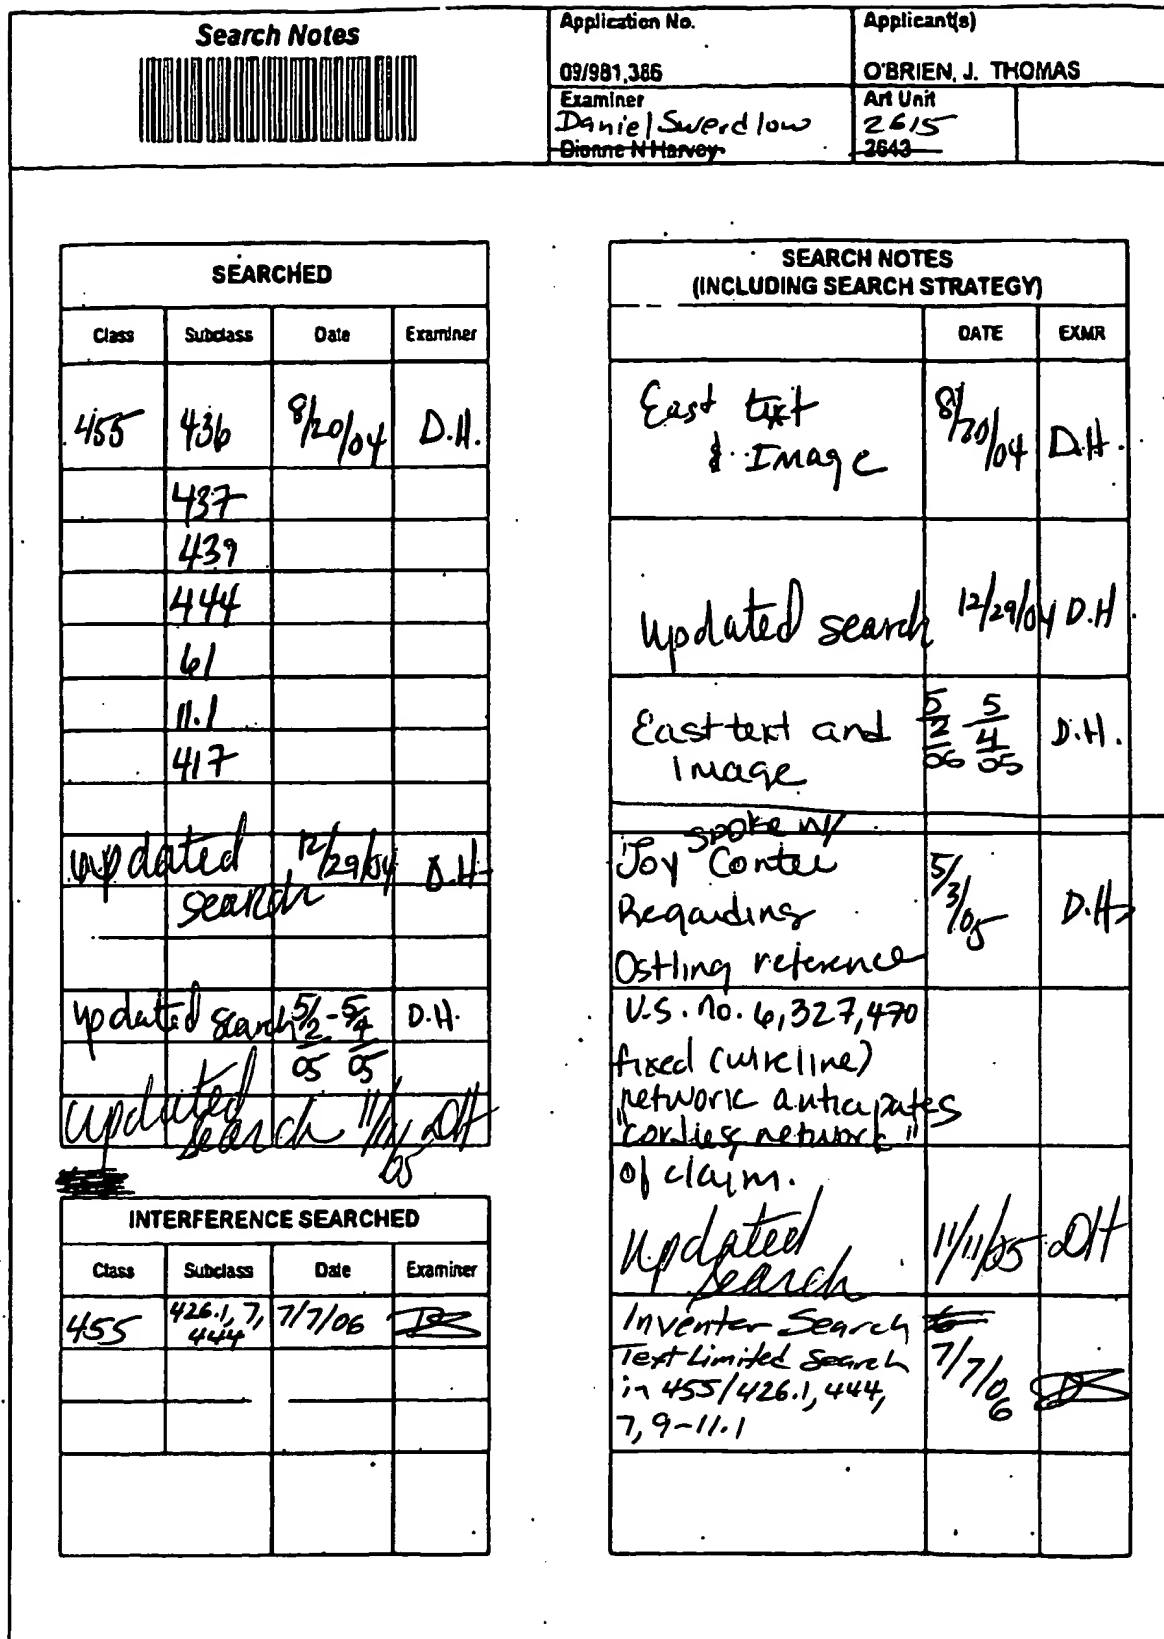 Search Notes
Application No.
09/981,386
Applicant(s)
O'BRIEN, J. THOMAS
Examiner
Daniel Swerdlow
Dionne N Harvey
Art Unit
2615
2643
SEARCHED
Class Subclass Date Examiner
455 436 8/20/04 D.H.
437
439
444
61
11.1
417
updated 12/29/04 D.H.
search
updated search 5/2 - 5/4 D.H.
05 05
updated
search 11/11/05 DH
INTERFERENCE SEARCHED
Class Subclass Date Examiner
455 426.1, 7, 7/7/06
444
SEARCH NOTES
(INCLUDING SEARCH STRATEGY)
DATE EXMR
East text 8/20/04 D.H.
& Image
updated search 12/29/04 D.H
East text and 5/2/06 5/4/05 D.H.
Image
spoke w/
Joy Contee 5/3/05 D.H.
Regarding
Ostling reference
U.S. no. 6,327,470
fixed (wireline)
network anticipates
"cordless network"
of claim.
updated 11/11/05 DH
search
Inventer Search
Text Limited Search 7/7/06
in 455/426.1, 444,
7, 9-11.1